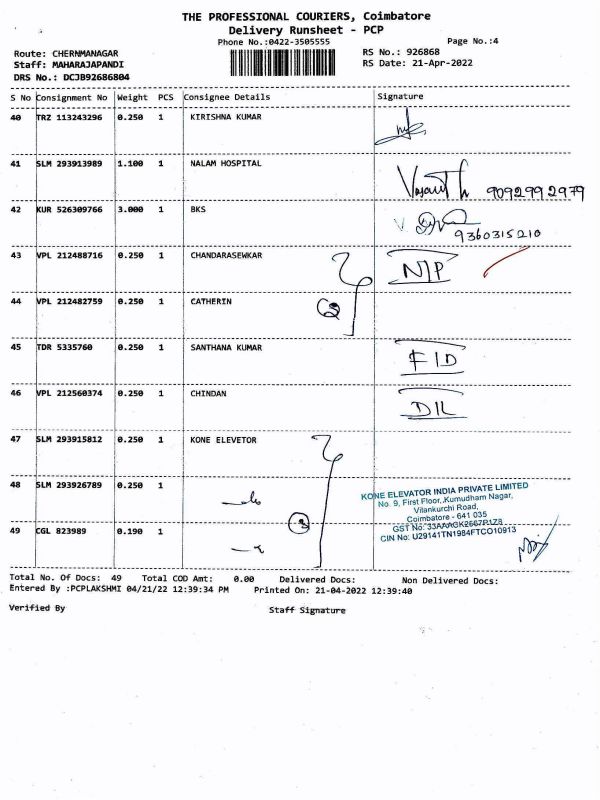 THE PROFESSIONAL COURIERS, Coimbatore
Delivery Runsheet - PCP
Phone No.:0422-3505555 Page No.:4
Route: CHERNMANAGAR RS No.: 926868
Staff: MAHARAJAPANDI RS Date: 21-Apr-2022
DRS No.: DCJB92686804
S No Consignment No Weight PCS Consignee Details Signature
40 TRZ 113243296 0.250 1 KIRISHNA KUMAR
41 SLM 293913989 1.100 1 NALAM HOSPITAL
9092992979
42 KUR 526309766 3.000 1 BKS
9360315210
43 VPL 212488716 0.250 1 CHANDARASEWKAR N/P
44 VPL 212482759 0.250 1 CATHERIN
45 TDR 5335760 0.250 1 SANTHANA KUMAR
46 VPL 212560374 0.250 1 CHINDAN D/L
47 SLM 293915812 0.250 1 KONE ELEVETOR
48 SLM 293926789 0.250 1
KONE ELEVATOR INDIA PRIVATE LIMITED
No. 9, First Floor, Kumudham Nagar,
Vilankurchi Road,
Coimbatore - 641 035
GST No: 33AAACK2567P1Z8
CIN No: U29141TN1984FTCO10913
49 CGL 823989 0.190 1 3
Total No. Of Docs: 49 Total COD Amt: 0.00 Delivered Docs: Non Delivered Docs:
Entered By :PCPLAKSHMI 04/21/22 12:39:34 PM Printed On: 21-04-2022 12:39:40
Verified By Staff Signature